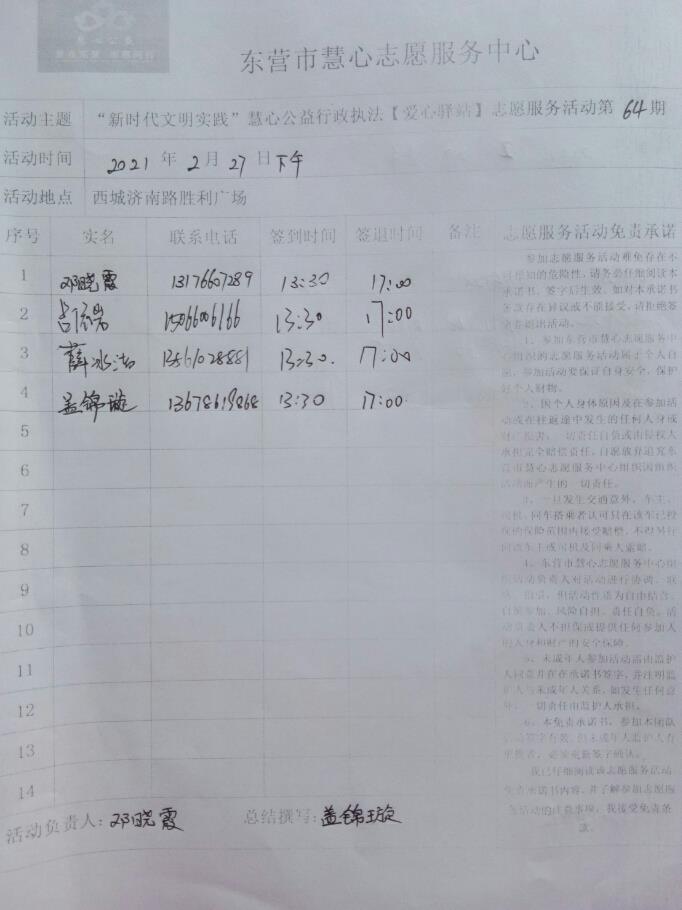 慧心公益
东营市慧心志愿服务中心
活动主题 “新时代文明实践”慧心公益行政执法【爱心驿站】志愿服务活动第 64 期
活动时间 2021 年 2 月 27 日 下午
活动地点 西城济南路胜利广场
序号 实名 联系电话 签到时间 签退时间 备注 志愿服务活动免责承诺
1 邓晓霞 13176607289 13:30 17:00
2 15066006166 13:30 17:00
3 薛冰洁 13561028881 13:30. 17:00
4 盖锦璇 13678619868 13:30 17:00
5
6
7
8
9
10
11
12
13
14
参加志愿服务活动难免存在不
可预知的危险性，请务必仔细阅读本
承诺书，签字后生效。如对本承诺书
条款存在异议或不能接受，请拒绝签
字并退出活动。
1、参加东营市慧心志愿服务中
心组织的志愿服务活动属于个人自
愿，参加活动要保证自身安全，保护
好个人财物。
2、因个人身体原因及在参加活
动或在往返途中发生的任何人身或
财产损害，一切责任自负或由侵权人
承担完全赔偿责任，自愿放弃追究东
营市慧心志愿服务中心组织因组织
活动而产生的一切责任。
3、一旦发生交通意外，车主、
司机、同车搭乘者认可只在该车已投
保的保险范围内接受赔偿，不得另行
向该车主或司机及同乘人索赔。
4、东营市慧心志愿服务中心组
织活动负责人对活动进行协调、联
络、但活动性质为自由结合、
自愿参加、风险自担、责任自负。活
动负责人不担保或提供任何参加人
的人身和财产的安全保障。
5、未成年人参加活动需由监护
人同意并在在承诺书签字，并注明监
护人与未成年人关系，如发生任何意
外，一切责任由监护人承担。
6、本免责承诺书，参加本团队
签字有效，但未成年人监护人有
必须重新签字确认。
我已仔细阅读该志愿服务活动
免责承诺书内容，并了解参加志愿服
务活动的注意事项，我接受免责条
款。
活动负责人：邓晓霞 总结撰写：盖锦璇